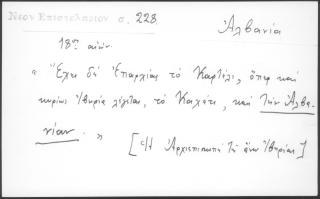 Νεον Επιστολαριον σ. 228
Ἀλβανία
18ος αἰών.
" Ἔχει δὲ Ἐπαρχίας τὸ Καρτέλι, ὅπερ καὶ
κυρίως Ἰβηρία λέγεται, τὸ Καχέτι, καὶ τὴν Ἀλβα-
νίαν. "
[ Ἀρχιεπισκοπὴ τῆς ἄνω Ἰβηρίας ]